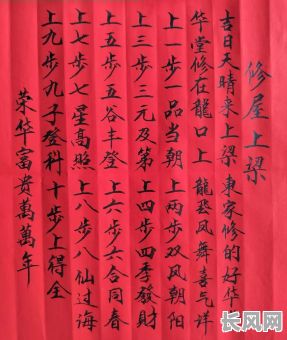 修屋上梁
吉日天晴来上梁 東家修的好华
华堂修在龍口上 龍飛凤舞喜气详
上一步一品当朝 上两步双凤朝阳
上三步三元及第 上四步四季發財
上五步五谷丰登 上六步六合同春
上七步七星高照 上八步八仙过海
上九步九子登科 十步上得全
荣华富貴萬萬年
长风网
cfw.cn